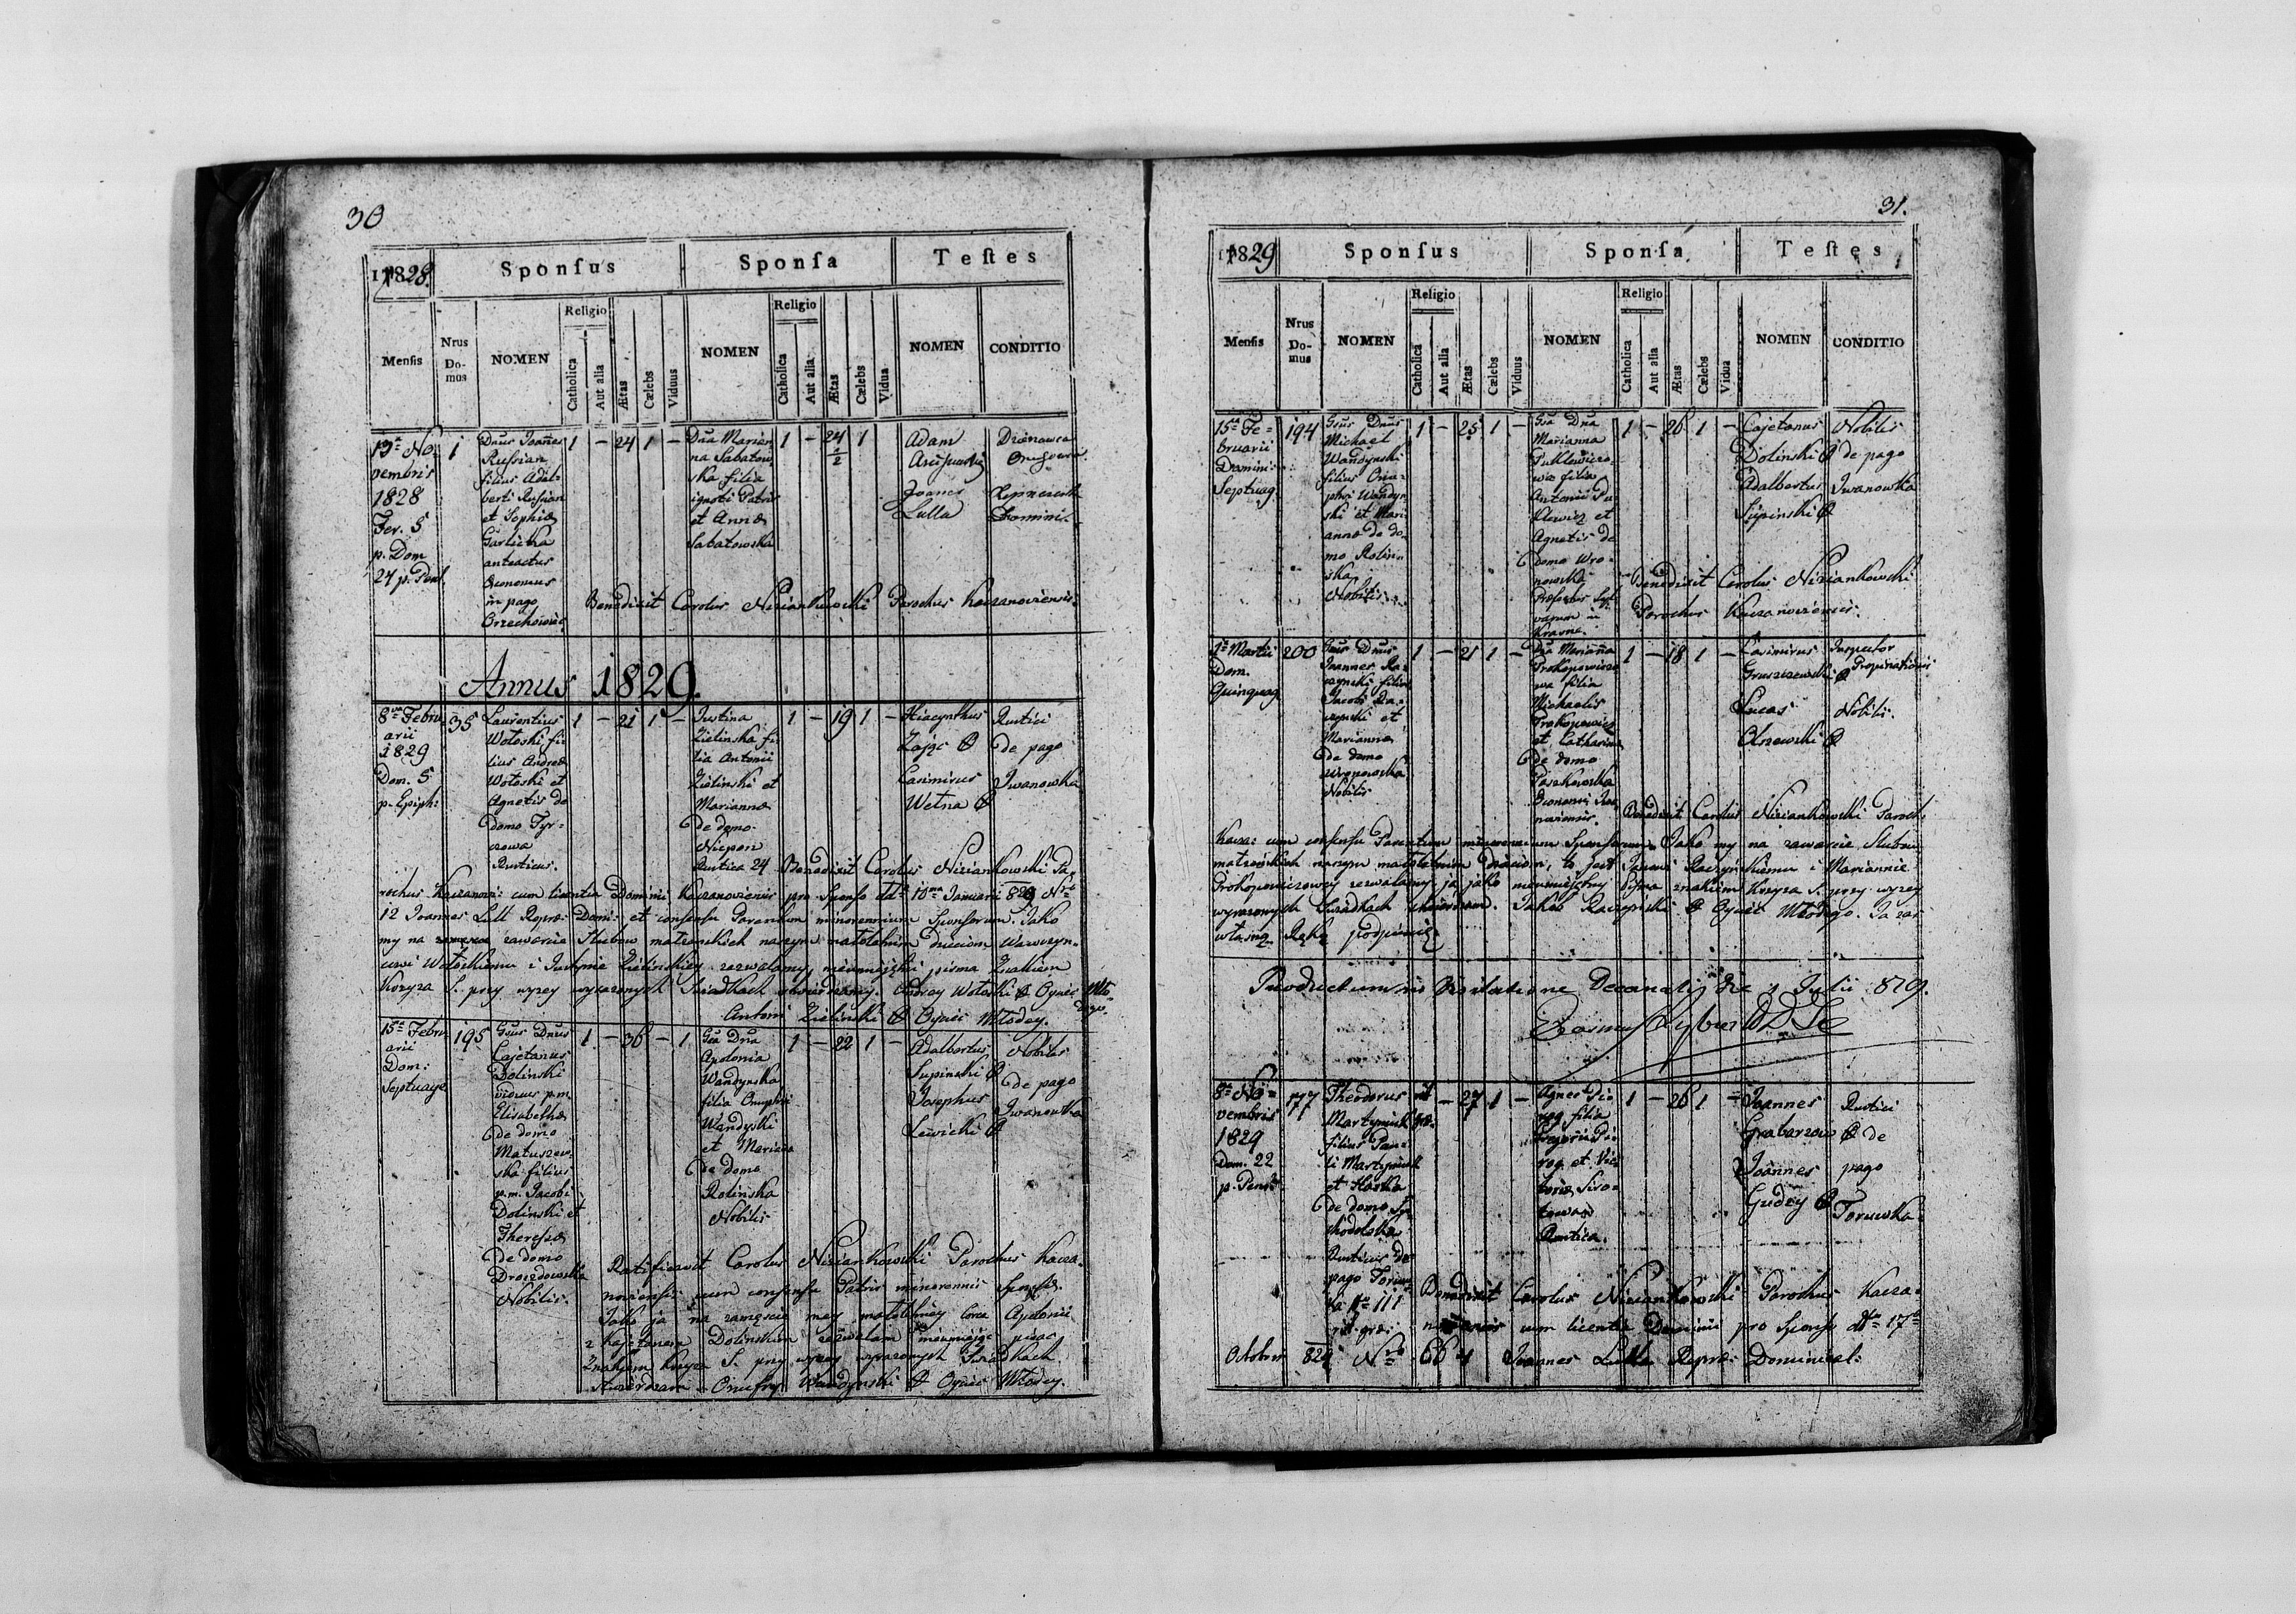 30
1828.
Sponsus
Sponsa
Testes
Mensis
Nrus Do- mus
NOMEN
Religio
Catholica
Aut alia
Ætas
Cælebs
Viduus
NOMEN
Religio
Catholica
Aut alia
Ætas
Cælebs
Vidua
NOMEN
CONDITIO
13a No-
vembris
1828
Fer. 5
p. Dom
24 p. Pent.
1
Dnus Joannes
Russian
filius Adal-
berti Russian
et Sophiæ
Garlicka
anteactus
Oeconomus
in pago
Orzechowiec
1 – 24 1 –
Dna Marian-
na Sabatow-
ska filia
ignoti Patris
et Annæ
Sabatowska
1 – 24 1
2
Adam
Joanes
Lulla
Benedixit Carolus Niziankowski Parochus Kaczanoviensis.
Annus 1829.
8va Febru-
arii
1829
Dom. 5
p. Epiph:
35
Laurentius
Wołoski fi-
lius Andreæ
Wołoski et
Agnetis de
domo Tyr-
czowa
Rusticus.
1 – 21 1 –
Justina
Zielinska fi-
lia Antonii
Zielinski et
Mariannæ
de domo
Niepon
Rustica 24
1 – 19 1 –
Hiacynthus
Zając
Casimirus
Wełna
Rustici
de pago
Iwanowka
Benedixit Carolus Niziankowski Pa-
rochus Kaczanov: cum licentia Dominii Kaczanoviensis pro Sponso ddto 10ma Januarii 829 Nro
12 Joannes Lull Repræ: Domi: et consensu Parentum minorennium Sponsorum. Jako
my na zawarcie Slubow małzenskich naszym małoletnim dzieciom Wawrzyn-
cowi Wołoskiemu i Justynie Zielinskiey zezwalamy, nieumiejętni pisma Znakiem
Krzyza S. przy wyzey wyrazonych Swiadkach stwierdzamy. Andrzey Wołoski Oyciec Mło-
dego.
Antoni Zielinski Oyciec Młodey.
15a Febru-
arii
Dom:
Septuage
195
Gsus Dnus
Cajetanus
Dolinski
viduus p.m.
Elisabethæ
de domo
Matuszew-
ska filius
p.m. Jacobi
Dolinski et
Theresiæ
de domo
Drozdowska
Nobilis.
1 – 36 – 1
Gsa Dna
Apolonia
Wandynska
filia Onuphrii
Wandyski
et Mariannæ
de domo
Rolinska
Nobilis
1 – 22 1 –
Adalbertus
Supinski
Josephus
Lewicki
Nobiles
de pago
Iwanowka
Ratificavit Carolus Niziankowski Parochus Kacza-
noviensis cum consensu Patris minorennis Sponsæ.
Jako ja na zamęscie mey małoletniey Corce Apolonii
z Kajetanem Dolinskim zezwalam nieumiejąc pisac,
Znakiem Krzyza S. przy wyzey wyrazonych Swiadkach
stwierdzam – Onufry Wandynski Oyciec Młodey.
31.
1829
Sponsus
Sponsa
Testes
Mensis
Nrus Do- mus
NOMEN
Religio
Catholica
Aut alia
Ætas
Cælebs
Viduus
NOMEN
Religio
Catholica
Aut alia
Ætas
Cælebs
Vidua
NOMEN
CONDITIO
15a Fe-
bruarii
Domini-
Septuag.
194
Gsus Dnus
Michael
Wandynski
filius Onu-
phri Wandyn-
ski et Mari-
annæ de do-
mo Rolin-
ska
Nobilis
1 – 25 1 –
Gsa Dna
Marianna
filia
Antonii
et
Agnetis de
domo Wro-
nowska
1 – 26 1 –
Cajetanus
Dolinski
Adalbertus
Supinski
Nobiles
de pago
Iwanowka
Benedixit Carolus Niziankowski
Parochus Kaczanoviensis.
1a Martii
Dom.
Quinquag
200
Gsus Dnus
Joannes Ra-
czynski filius
Jacobi Ra-
czynski et
Mariannæ
de domo
Wronowska
Nobilis
1 – 21 1 –
Dna Marianna
Prokopowiczo-
wa filia
Michaelis
Prokopowicz
et Catharinæ
de domo
Paszkowska
1 – 18 1 –
Casimirus
Gruszczewski
Lucas
Olszewski
Inspector
Propinationis
Nobilis.
Benedixit Carolus Niziankowski Paroch:
Kacza: cum consensu Parentum minorennium Sponsorum. Jako my na zawarcie Slubow
małzenskich naszym małoletnim dzieciom, to jest Janowi Raczynskiemu i Mariannie
Prokopowiczowny zezwalamy, ja jako nieumiejętny Pisma znakiem Krzyza S. przy wyzey
wyrazonych Swiadkach stwierdzam. Jakob Raczynski Oyciec Młodego. Ja zas
własną Ręką podpisuię
Productum in Visitatione Decanali die Julii 829.
8a No-
vembris
1829
Dom. 22
p. Pent.
177
Theodorus
Martyniuk
filius Pau-
li Martyniuk
et
de domo
Rusticus de
pago Toruw-
ka Nro 111
rit. græ.
rit græ. – 27 1 –
Agnes Pi-
rog filia
Gregorii Pi-
rog et Vic-
toriæ Siro-
Rustica.
1 – 26 1 –
Joannes
Grabarzow
Joannes
Gudey
Rustici
de
pago
Toruwka
Benedixit Carolus Niziankowski Parochus Kacza-
noviensis cum licentia Dominii pro Sponso ddto 17a
Octobris 829 Nro 664 Joannes Lulla Repræ: Dominical: